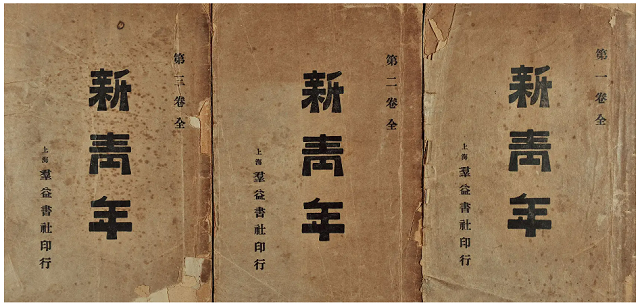 第一卷全
新青年
上海 羣益書社印行
第二卷全
新青年
上海 羣益書社印行
第三卷全
新青年
上海 羣益書社印行